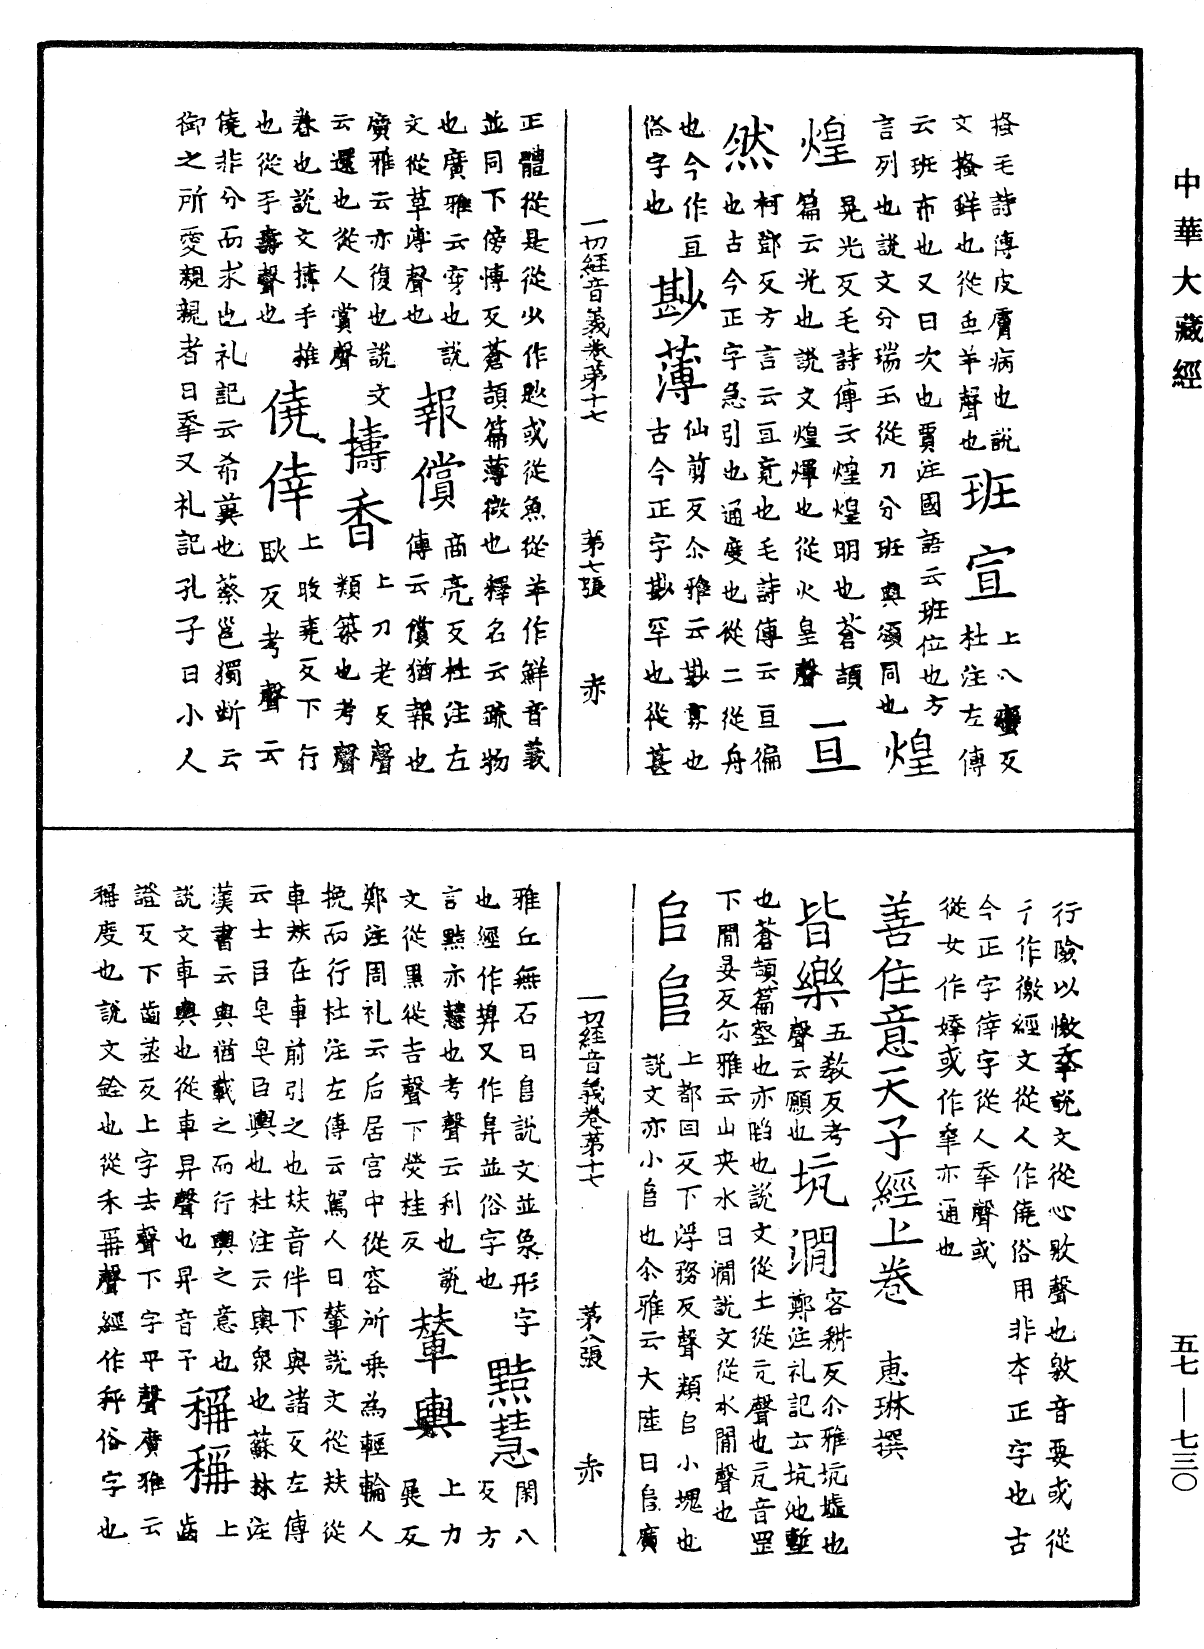 中華大藏經
搔毛詩傳皮膚病也說
文搔鲜也從䖝羊聲也
班宣
上八蠻反
杜注左傳
云班布也又曰次也賈注國語云班位也方
言列也說文分瑞玉從刀分班與頒同也
煌煌
晃光反毛詩傳云煌煌明也蒼頡
篇云光也說文煌煇也從火皇聲
亘然
柯鄧反方言云亘竟也毛詩傳云亘徧
也古今正字急引也通度也從二從舟
也今作亘
俗字也
尠薄
仙剪反尒雅云尠寡也
古今正字尠罕也從甚
一切經音義卷第十七 第七張 赤
正體從是從少作尟或從魚從羊作鮮音義
並同下傍愽反蒼頡篇薄微也釋名云疏物
也廣雅云穿也說
文從草溥聲也
報償
商亮反杜注左
傳云償猶報也
廣雅云亦復也說文
云還也從人賞聲
擣香
上刀老反聲
類築也考聲
舂也說文擣手推
也從手壽聲也
僥倖
上晈堯反下行
耿反考聲云
僥非分而求也礼記云希冀也蔡邕獨斷云
御之所愛親親者曰幸又礼記孔子曰小人
行險以憿幸說文從心敫聲也敫音要或從
彳作徼經文從人作僥俗用非本正字也古
今正字倖字從人幸聲或
從女作婞或作㚔亦通也
善住意天子經上卷 惠琳撰
皆樂
五教反考
聲云願也
坑澗
客耕反尒雅坑墟也
鄭注礼記云坑池塹
也蒼頡篇壑也亦陷也說文從土從亢聲也亢音罡
下閒晏反尔雅云山夾水曰澗說文從水閒聲也
𠂤𨸏
上都回反下浮務反聲類𠂤小塊也
說文亦小𨸏也尒雅云大陸曰𨸏廣
一切經音義卷第十七 第八張 赤
雅丘無石曰𨸏說文並象形字
也經作埠又作阜並俗字也
黠慧
閑八
反方
言黠亦慧也考聲云利也說
文從黑從吉聲下熒桂反
輦輿
上力
展反
鄭注周礼云后居宮中從容所乘為輕輪人
挽而行杜注左傳云駕人曰輦說文從㚘從
車㚘在車前引之也㚘音伴下與諸反左傳
云士臣皂皂臣輿也杜注云輿衆也蘇林注
漢書云輿猶載之而行輿之意也
說文車輿也從車舁聲也舁音予
稱稱
上
齒
證反下齒蒸反上字去聲下字平聲廣雅云
稱度也說文銓也從禾爯聲經作秤俗字也
五七—七三〇